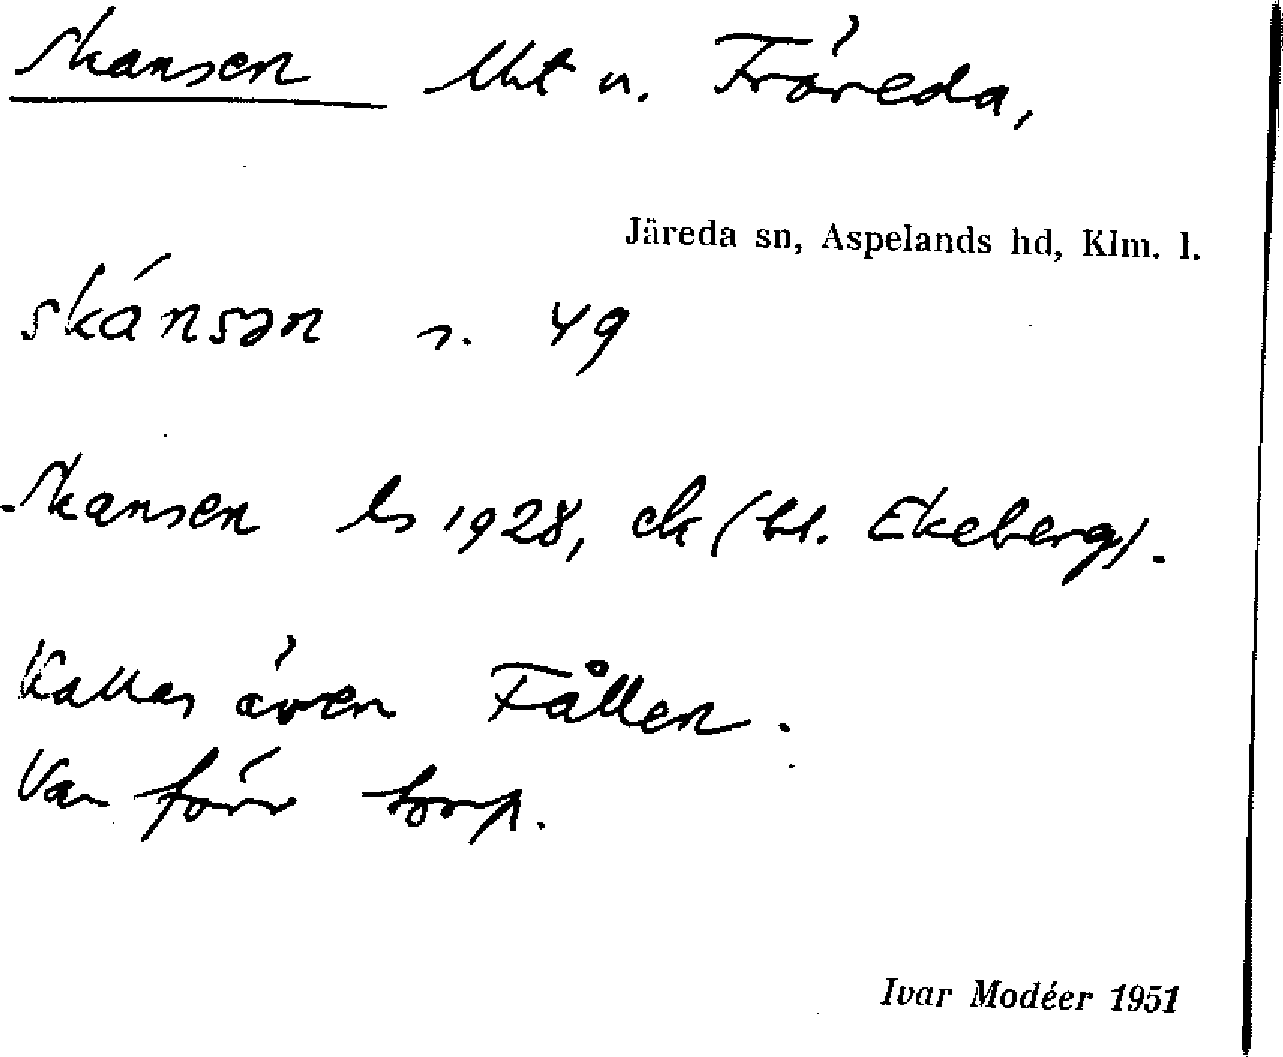 Skansen lht u. Fröreda,
Järeda sn, Aspelands hd, Klm. l.
skánsən s. 49
Skansen ls 1928, ek (bl. Ekeberg).
Kallas även Fållen.
Var förr torp.
Ivar Modéer 1951